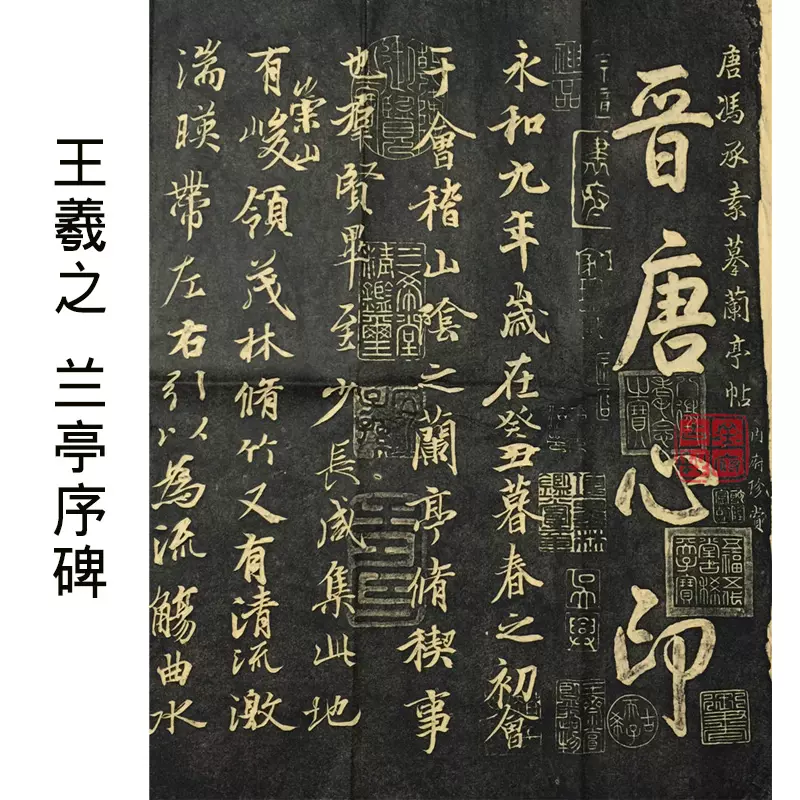 王羲之 兰亭序碑
唐馮承素摹蘭亭帖
内府珍賞
晉唐心印
永和九年歲在癸丑暮春之初會
于會稽山陰之蘭亭脩稧事
也羣賢畢至少長咸集此地
有崇山峻領茂林脩竹又有清流激
湍暎帶左右引以為流觴曲水
三希堂精鑑璽
宜子孫